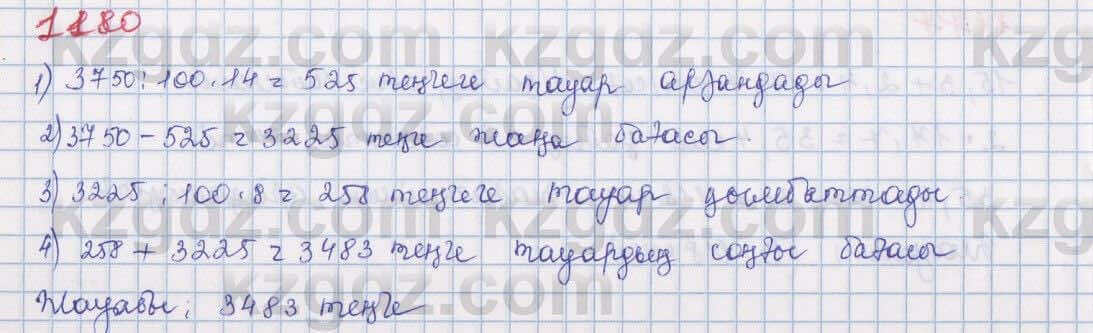 1180
1) 3750:100·14=525 теңгеге тауар арзандады
2) 3750-525=3225 теңге жаңа бағасы.
3) 3225:100·8=258 теңгеге тауар қымбаттады.
4) 258+3225=3483 теңге тауардың соңғы бағасы
Жауабы: 3483 теңге